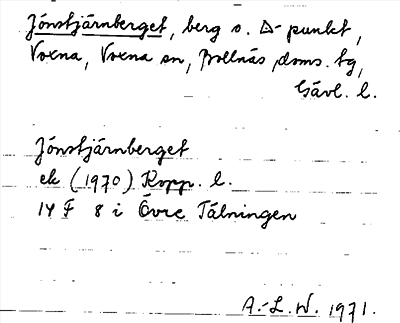 Jönstjärnberget, berg o. Δ-punkt,
Voxna, Voxna sn, Bollnäs doms. tg,
Gävl. l.
Jönstjärnberget
ek (1970) Kopp. l.
14 F 8 i Övre Tälningen
A.-L. W. 1971.